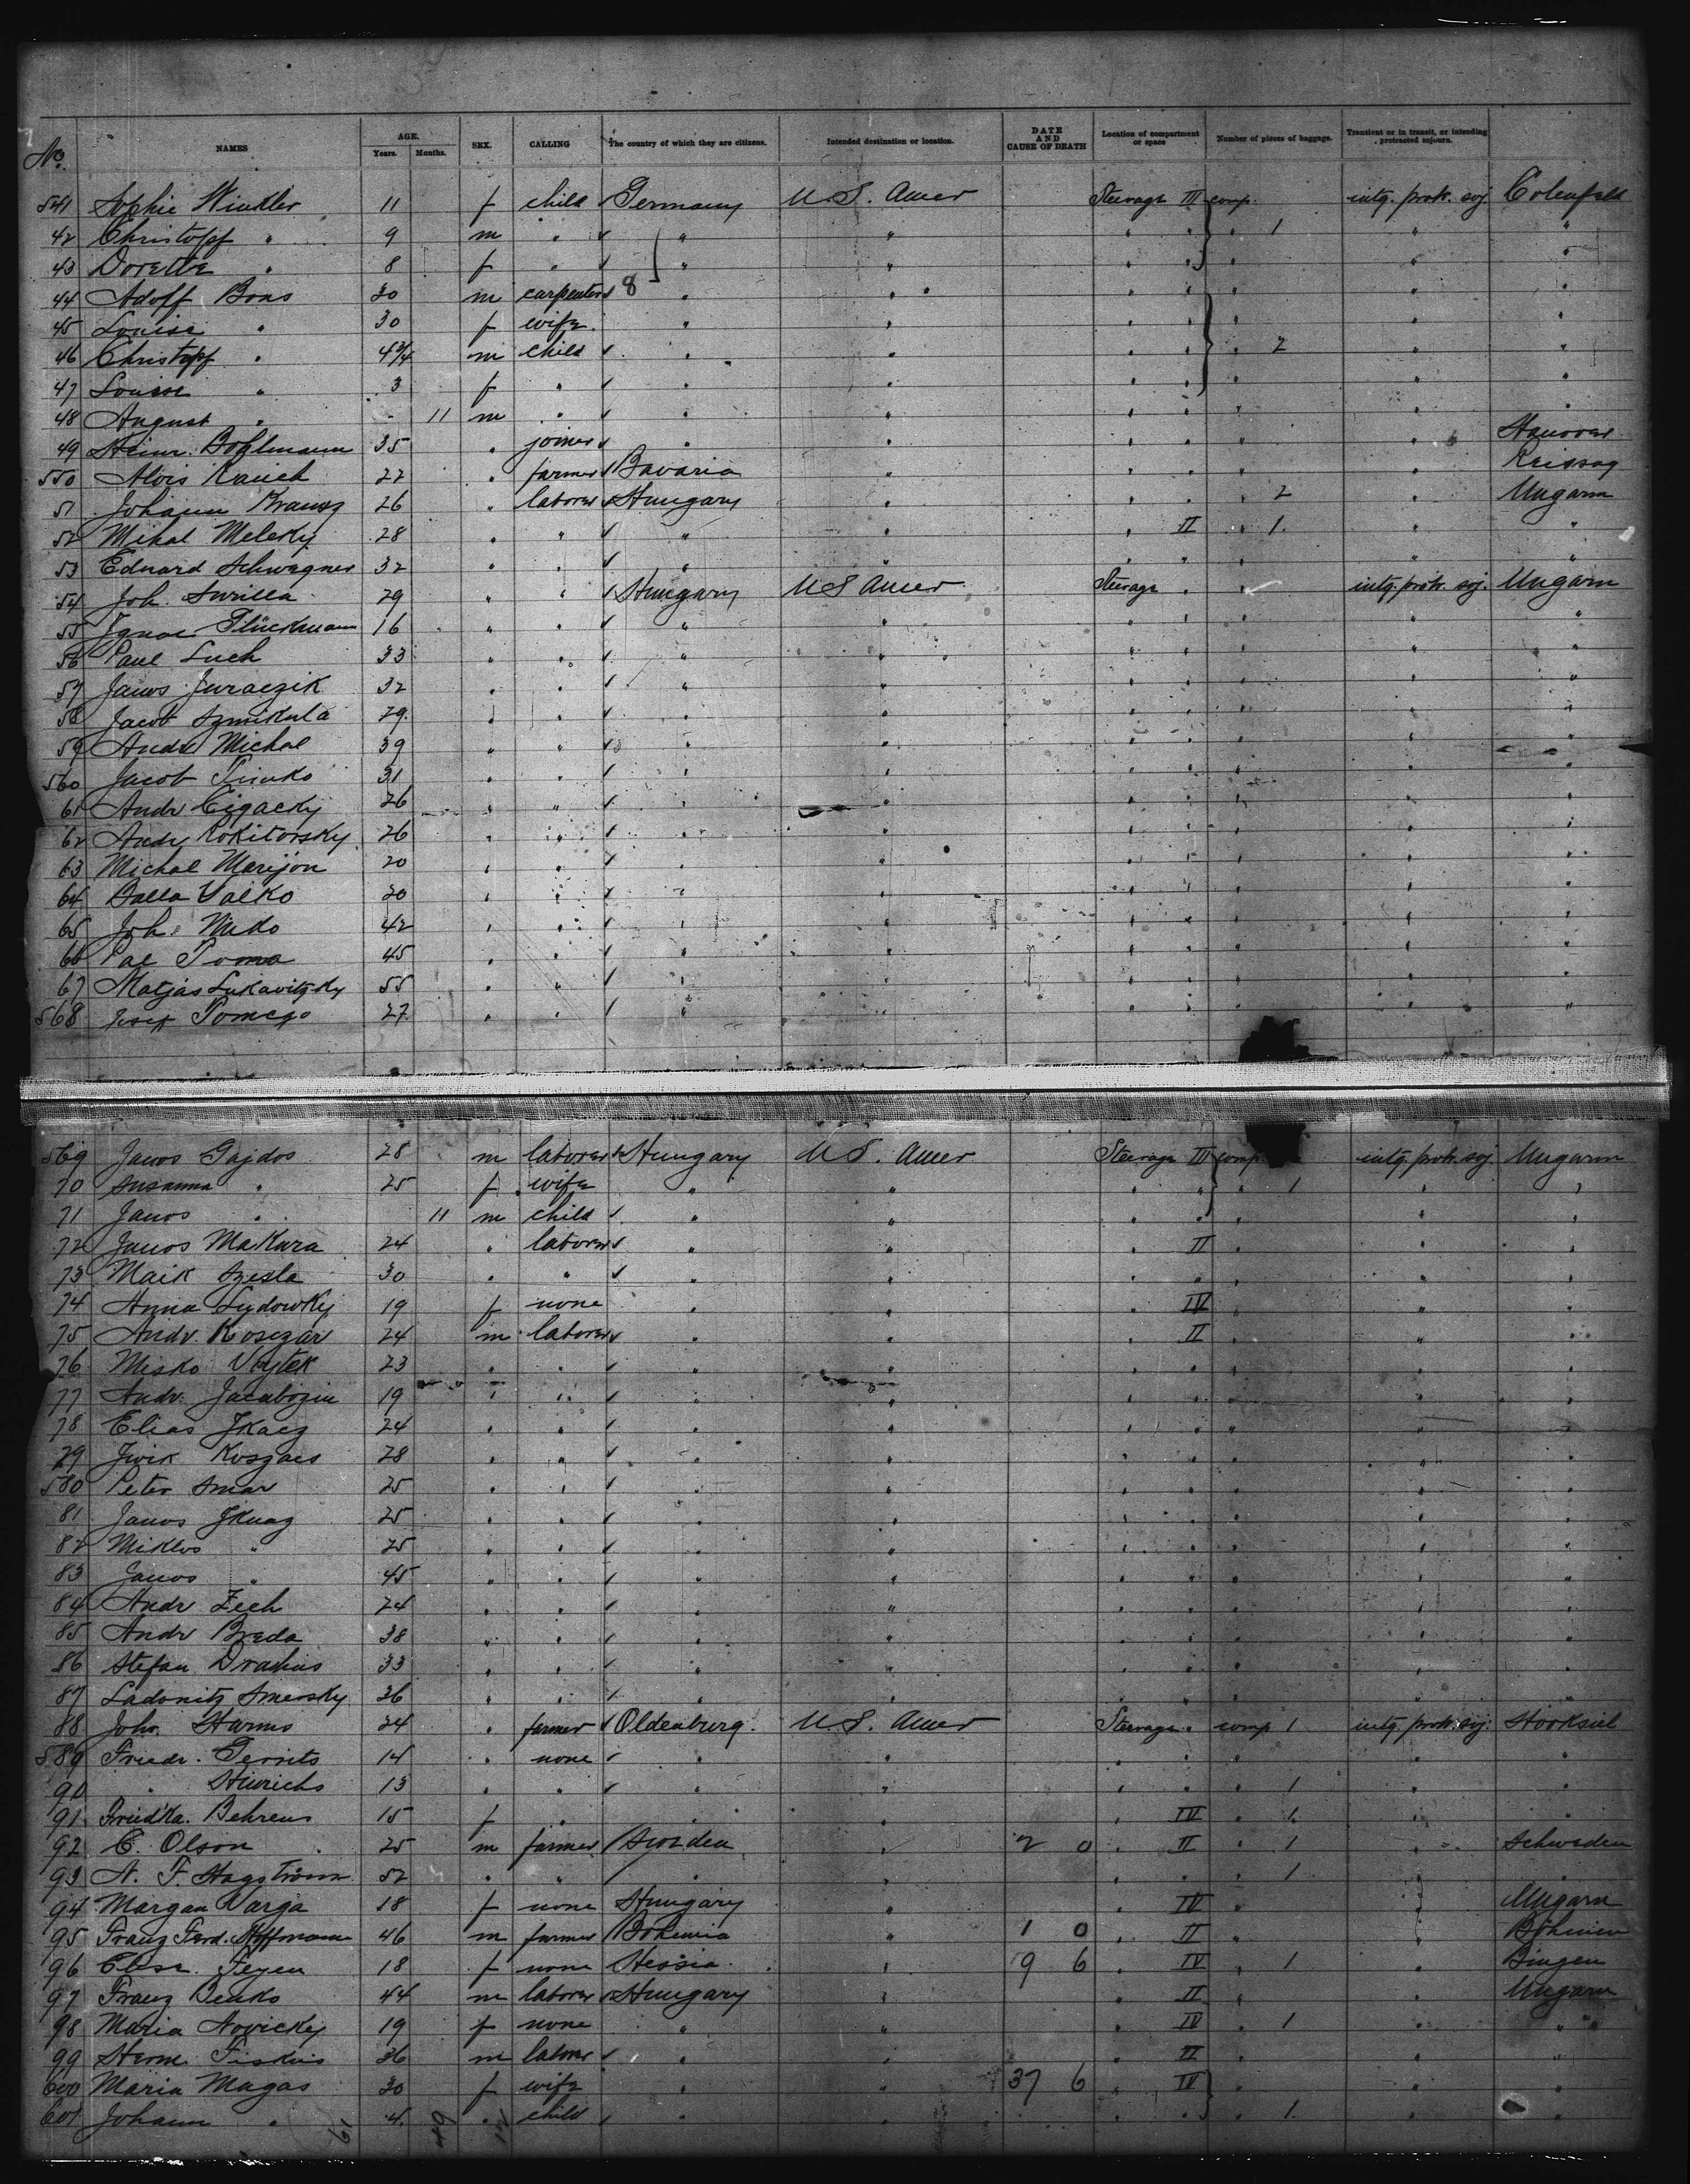 No. NAMES AGE. Years. Months. SEX. CALLING The country of which they are citizens. Intended destination or location. DATE AND CAUSE OF DEATH Location of compartment or space Number of pieces of baggage. Transient or in transit, or intending protracted sojourn.
541 Sophie Winkler 11 f child Germany U.S. Amer Steerage III comp. intg. protr. soj. Colenfeld
42 Christopf " 9 m " " " " " " 1 " "
43 Dorette " 8 f " " " " " " " "
44 Adolf Bons 30 m carpenter 8 " " " " " "
45 Louise " 30 f wife " " " " " " "
46 Christopf " 4 3/4 m child " " " " " 2 " "
47 Louise " 3 f " " " " " " " "
48 August " - 11 m " " " " " " " "
49 Heinr. Bohlmann 35 " joiner " " " " " " Hanover
550 Alois Rauch 22 " farmer Bavaria " " " " "
51 Johann Krausz 26 " laborer Hungary " " " " 2 " Ungarn
52 Mihal Melesky 28 " " " " " II " 1 " "
53 Eduard Schwagner 32 " " " " " " " " "
54 Joh. Surilla 29 " " Hungary U S Amer Steerage " " intg. protr. soj. Ungarn
55 Ignac Glückmann 16 " " " " " " " " "
56 Paul Luch 33 " " " " " " " " "
57 Janos Juraczik 32 " " " " " " " " "
58 Jacob Szmikula 29 " " " " " " " " "
59 Andr Michal 39 " " " " " " " " "
560 Jacob Timko 31 " " " " " " " " "
61 Andr Cigacky 26 " " " " " " " " "
62 Andr Rokitorsky 26 " " " " " " " " "
63 Michal Marijon 20 " " " " " " " " "
64 Balla Valko 20 " " " " " " " " "
65 Joh. Mido 42 " " " " " " " " "
66 Pal Toma 45 " " " " " " " " "
67 Matjas Lukavitzky 55 " " " " " " " " "
568 Josef Tomego 27 " " " " " " " " "
569 Janos Gajdos 28 m laborer Hungary U S. Amer Steerage III comp. intg. protr. soj. Ungarn
70 Susanna " 25 f wife " " " " " 1 " "
71 Janos " 11 m child " " " " " " "
72 Janos Makura 24 " laborer " " " II " " "
73 Maik Szesla 30 " " " " " " " " "
74 Anna Lydowky 19 f none " " " IV " " "
75 Andr. Kosczar 24 m laborer " " " II " " "
76 Misko Vbytek 23 " " " " " " " " "
77 Andr. Jacubozin 19 " " " " " " " " "
78 Elias Jkacz 24 " " " " " " " " "
79 Jwik Koszaes 28 " " " " " " " " "
580 Peter Smar 25 " " " " " " " " "
81 Janos Jknaz 25 " " " " " " " " "
82 Miklos " 25 " " " " " " " " "
83 Janos " 45 " " " " " " " " "
84 Andr Zech 24 " " " " " " " " "
85 Andr Breda 38 " " " " " " " " "
86 Stefan Drahus 33 " " " " " " " " "
87 Ladonitz Smersky 36 " " " " " " " " "
88 Joh. Harms 24 " farmer Oldenburg. U.S. Amer Steerage " comp 1 intg. protr. soj. Hooksiel
589 Friedr. Gerrits 14 " none " " " " " " "
90 " Hinrichs 13 " " " " " " " 1 " "
91 Friedka. Behrens 15 f " " " " IV " 1 " "
92 C. Olson 25 m farmer Sweden " 2 0 " II " 1 " Schweden
93 N. F. Hagström 52 " " " " " " " 1 " "
94 Margan Varga 18 f none Hungary " " IV " " Ungarn
95 Franz Ferd. Hoffmann 46 m farmer Bohemia " 1 0 " II " " Böhmen
96 Elise Feyen 18 f none Hessia " 9 6 " IV " 1 " Bingen
97 Franz Benko 44 m laborer Hungary " " II " " Ungarn
98 Maria Novicky 19 f none " " " IV " 1 " "
99 Herm. Fiskus 36 m laborer " " " II " " "
600 Maria Magas 30 f wife " " 37 6 " IV " " "
601 Johann " 4 " child " " " " " 1 " "
61 49 12